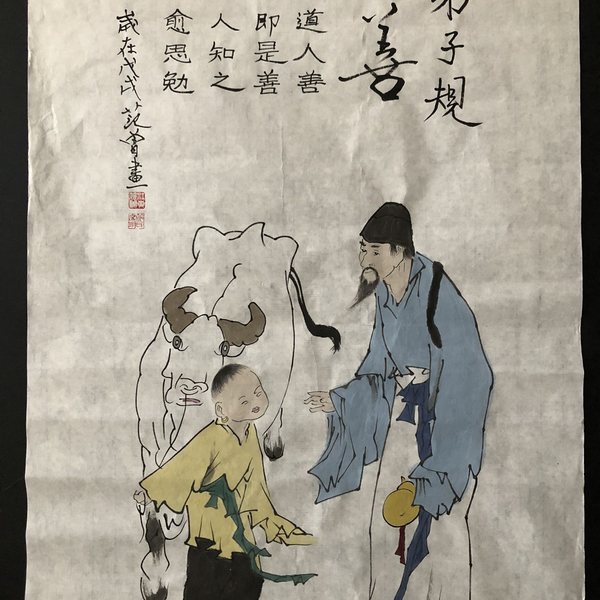 弟子規
善
道人善
即是善
人知之
愈思勉
歲在戊戌 范曾畫